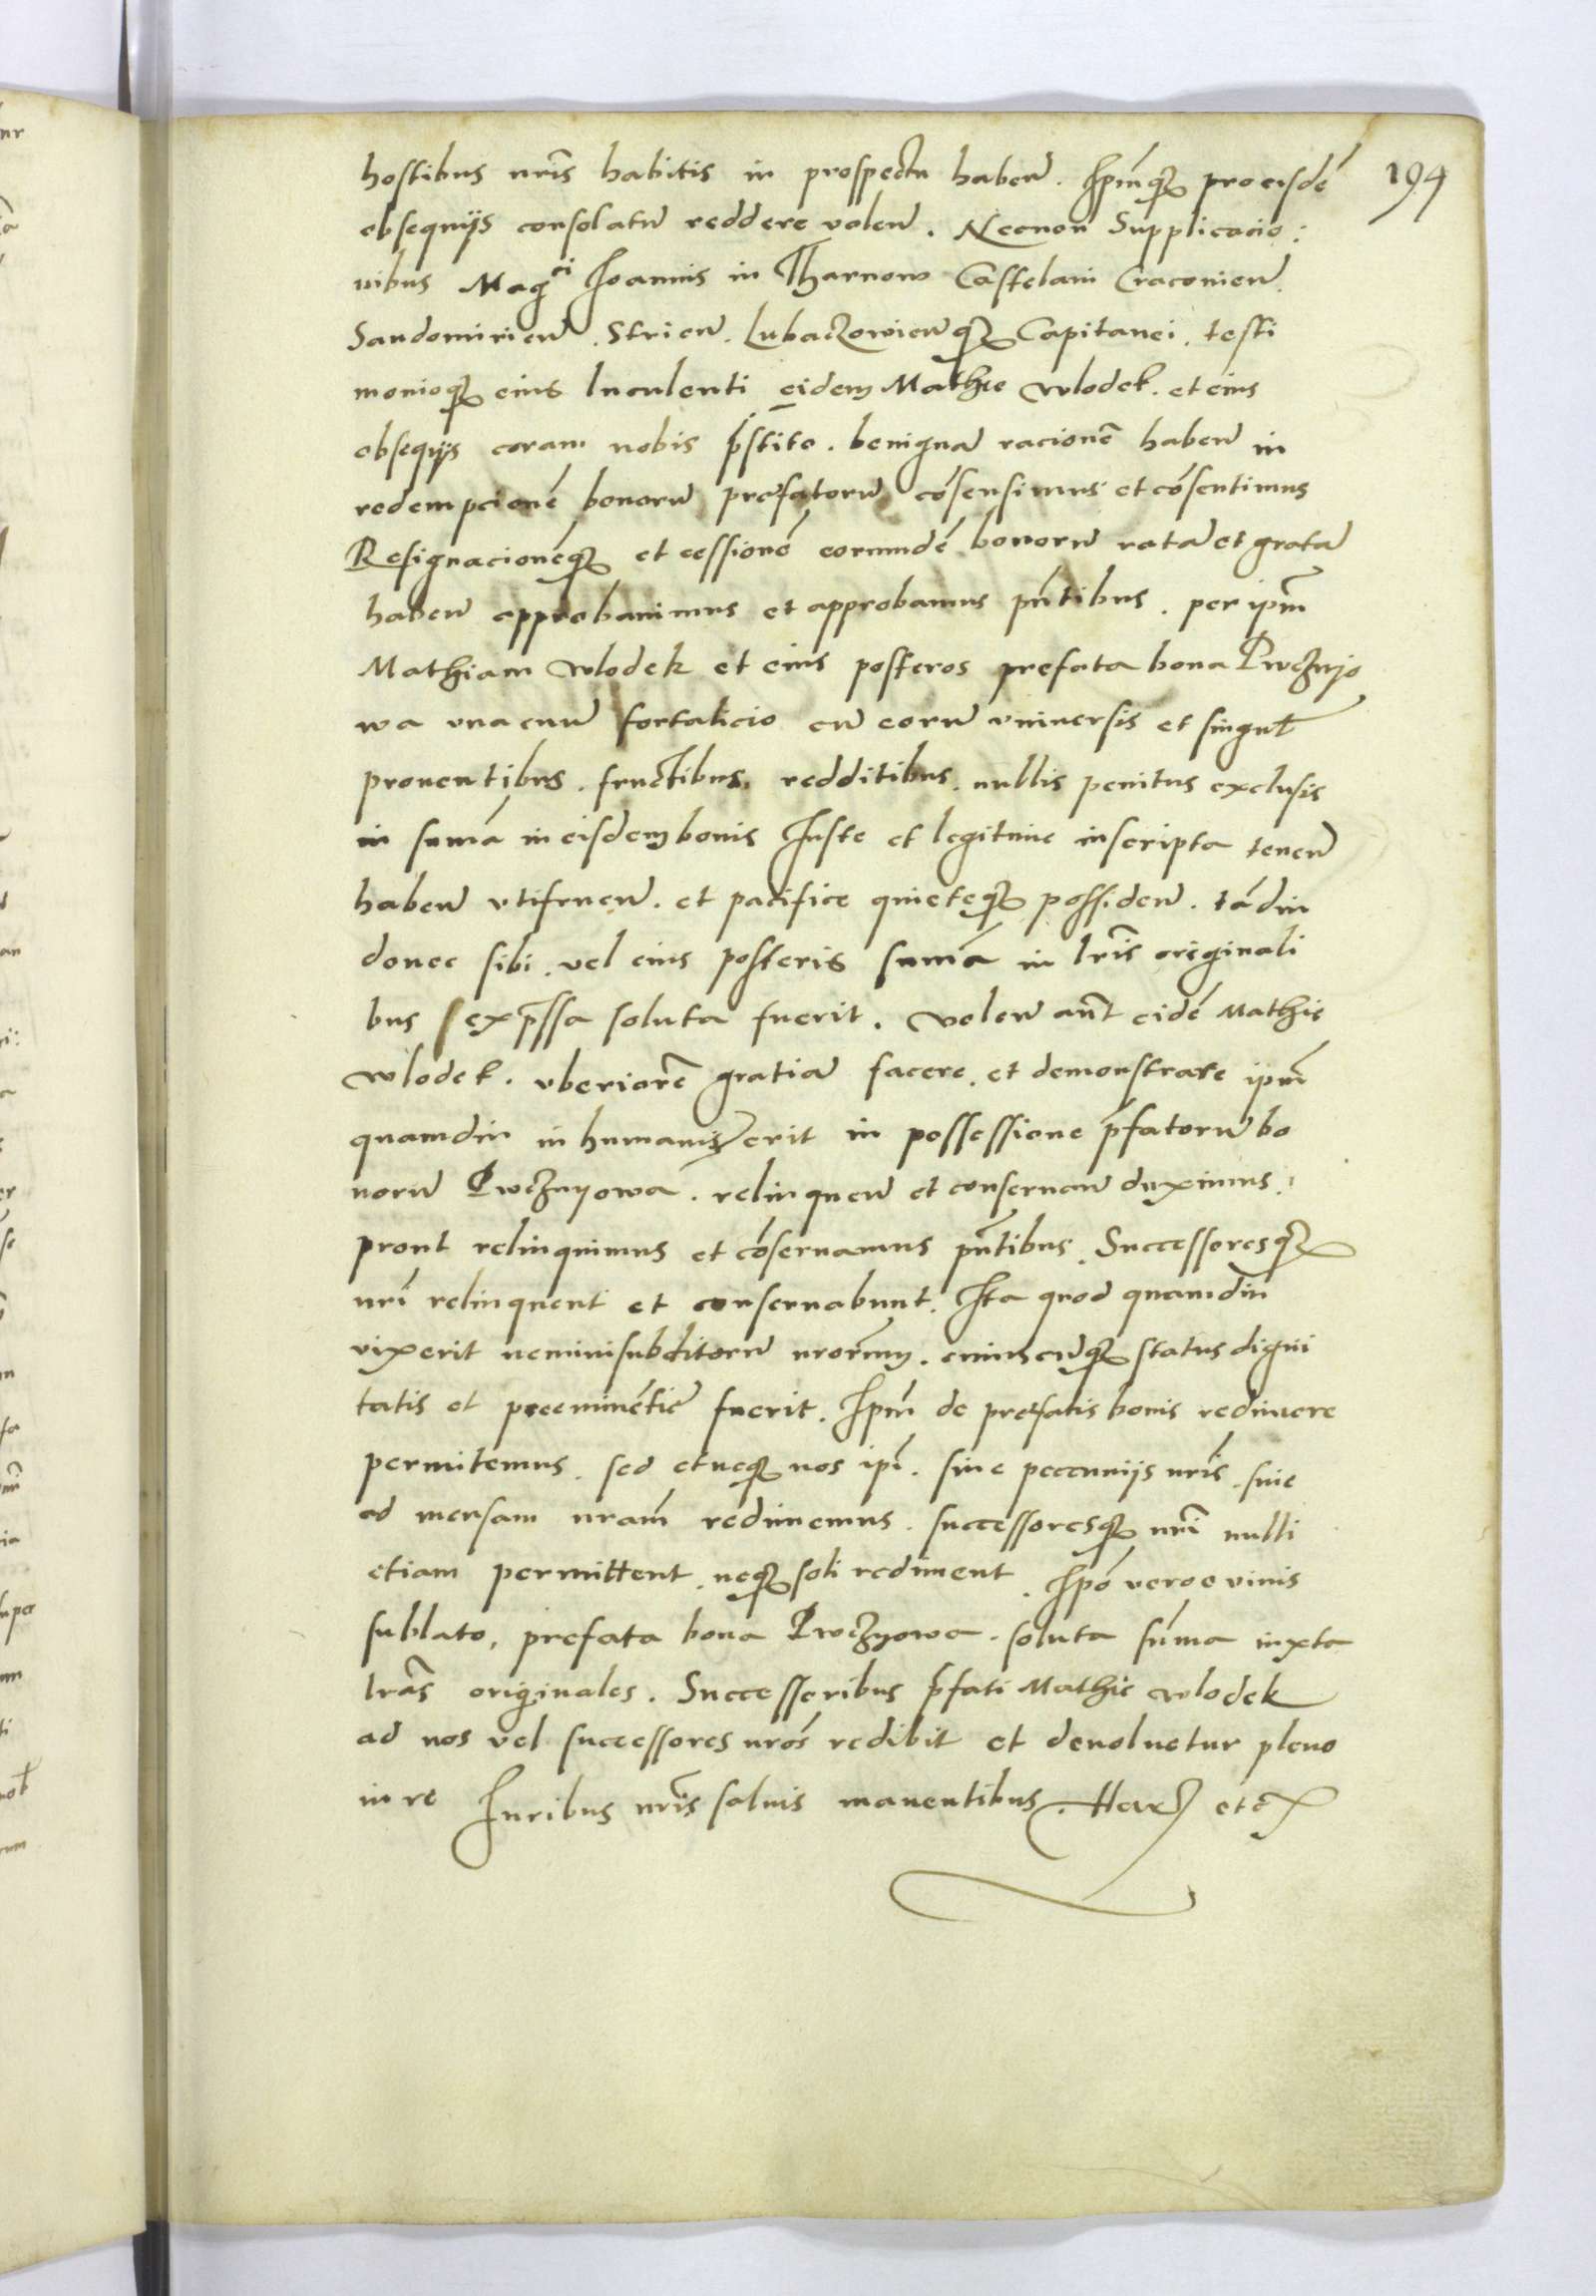 hostibus nr̃is habitis in prospectu haben̄. Ipm̃qʒ pro eisdē 194
obsequijs consolatū reddere volen̄. Necnon Supplicacio:
nibus Mag^ci Ioannis in Tharnow Castelani Cracouien̄.
Sandomirien̄. Strien̄. Lubaczowien̄qʒ Capitanei. testi
monioqʒ eius luculenti eidem Mathie Wlodek. et eius
obseqijs coram nobis p̄stito. benignā racionē haben̄ in
redempcionē bonorū prefatorū cōsensimus et cōsentimus
Resignacionēqʒ et cessionē eorumdē bonorū ratā et gratā
haben̄ approbauimus et approbamus pn̄tibus. per ipm̃
Mathiam Wlodek et eius posteros prefata bona Qwcznijo
wa vna cum fortalicio cū eorū vniuersis et singul̄
prouentibus. fructibus. redditibus. nullis penitus exclusis
in sum̄a in eisdem bonis Iuste et legitime inscripta tenen̄
haben̄ vtifruen̄. et pacifice quieteqʒ possiden̄. tādiu
donec sibi. vel eius posteris sum̄a in lr̃is originali
bus exp̄ssa soluta fuerit. volen̄ aūt eidē Mathie
Wlodek. vberiorē gratiā facere. et demonstrare ipm̃
quamdiu in humanis erit in possessione p̄fatorū bo
norū Qwcznyowa. relinquen̄ et conseruan̄ duximus.
prout relinquimus et cōseruamus pn̄tibus. Successoresqʒ
nr̃i relinquent et conseruabunt. Ita quod quamdiu
vixerit nemini subditorū nrōrum. cuiuscūqʒ status digni
tatis et preeminētie fuerit. Ipm̃ de prefatis bonis redimere
permitemus. sed et neqʒ nos ip̄i. siue peccunijs nr̃is. siue
ad mensam nrām redimemus. successoresqʒ nr̃i nulli
etiam permittent. neqʒ soli rediment. Ip̄o vero e viuis
sublato, prefata bona Qwcznyowa. soluta sum̄a iuxta
lrās originales. Successoribus p̄fati Mathie Wlodek
ad nos vel successores nrōs redibit et deuoluetur pleno
iure Iuribus nr̃is saluis manentibus. Harʒ etc̄